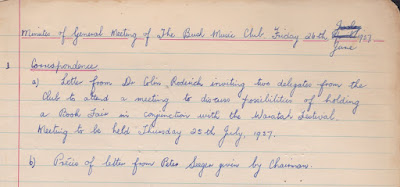 Minutes of General Meeting of The Bush Music Club Friday 26th 1957
June
1 Correspondence
a) Letter from Dr Colin Roderick inviting two delegates from the
Club to attend a meeting to discuss possibilities of holding
a Book Fair in conjunction with the Waratah Festival.
Meeting to be held Thursday 25th July, 1957.
b) Précis of letter from Pete Seeger given by Chairman.